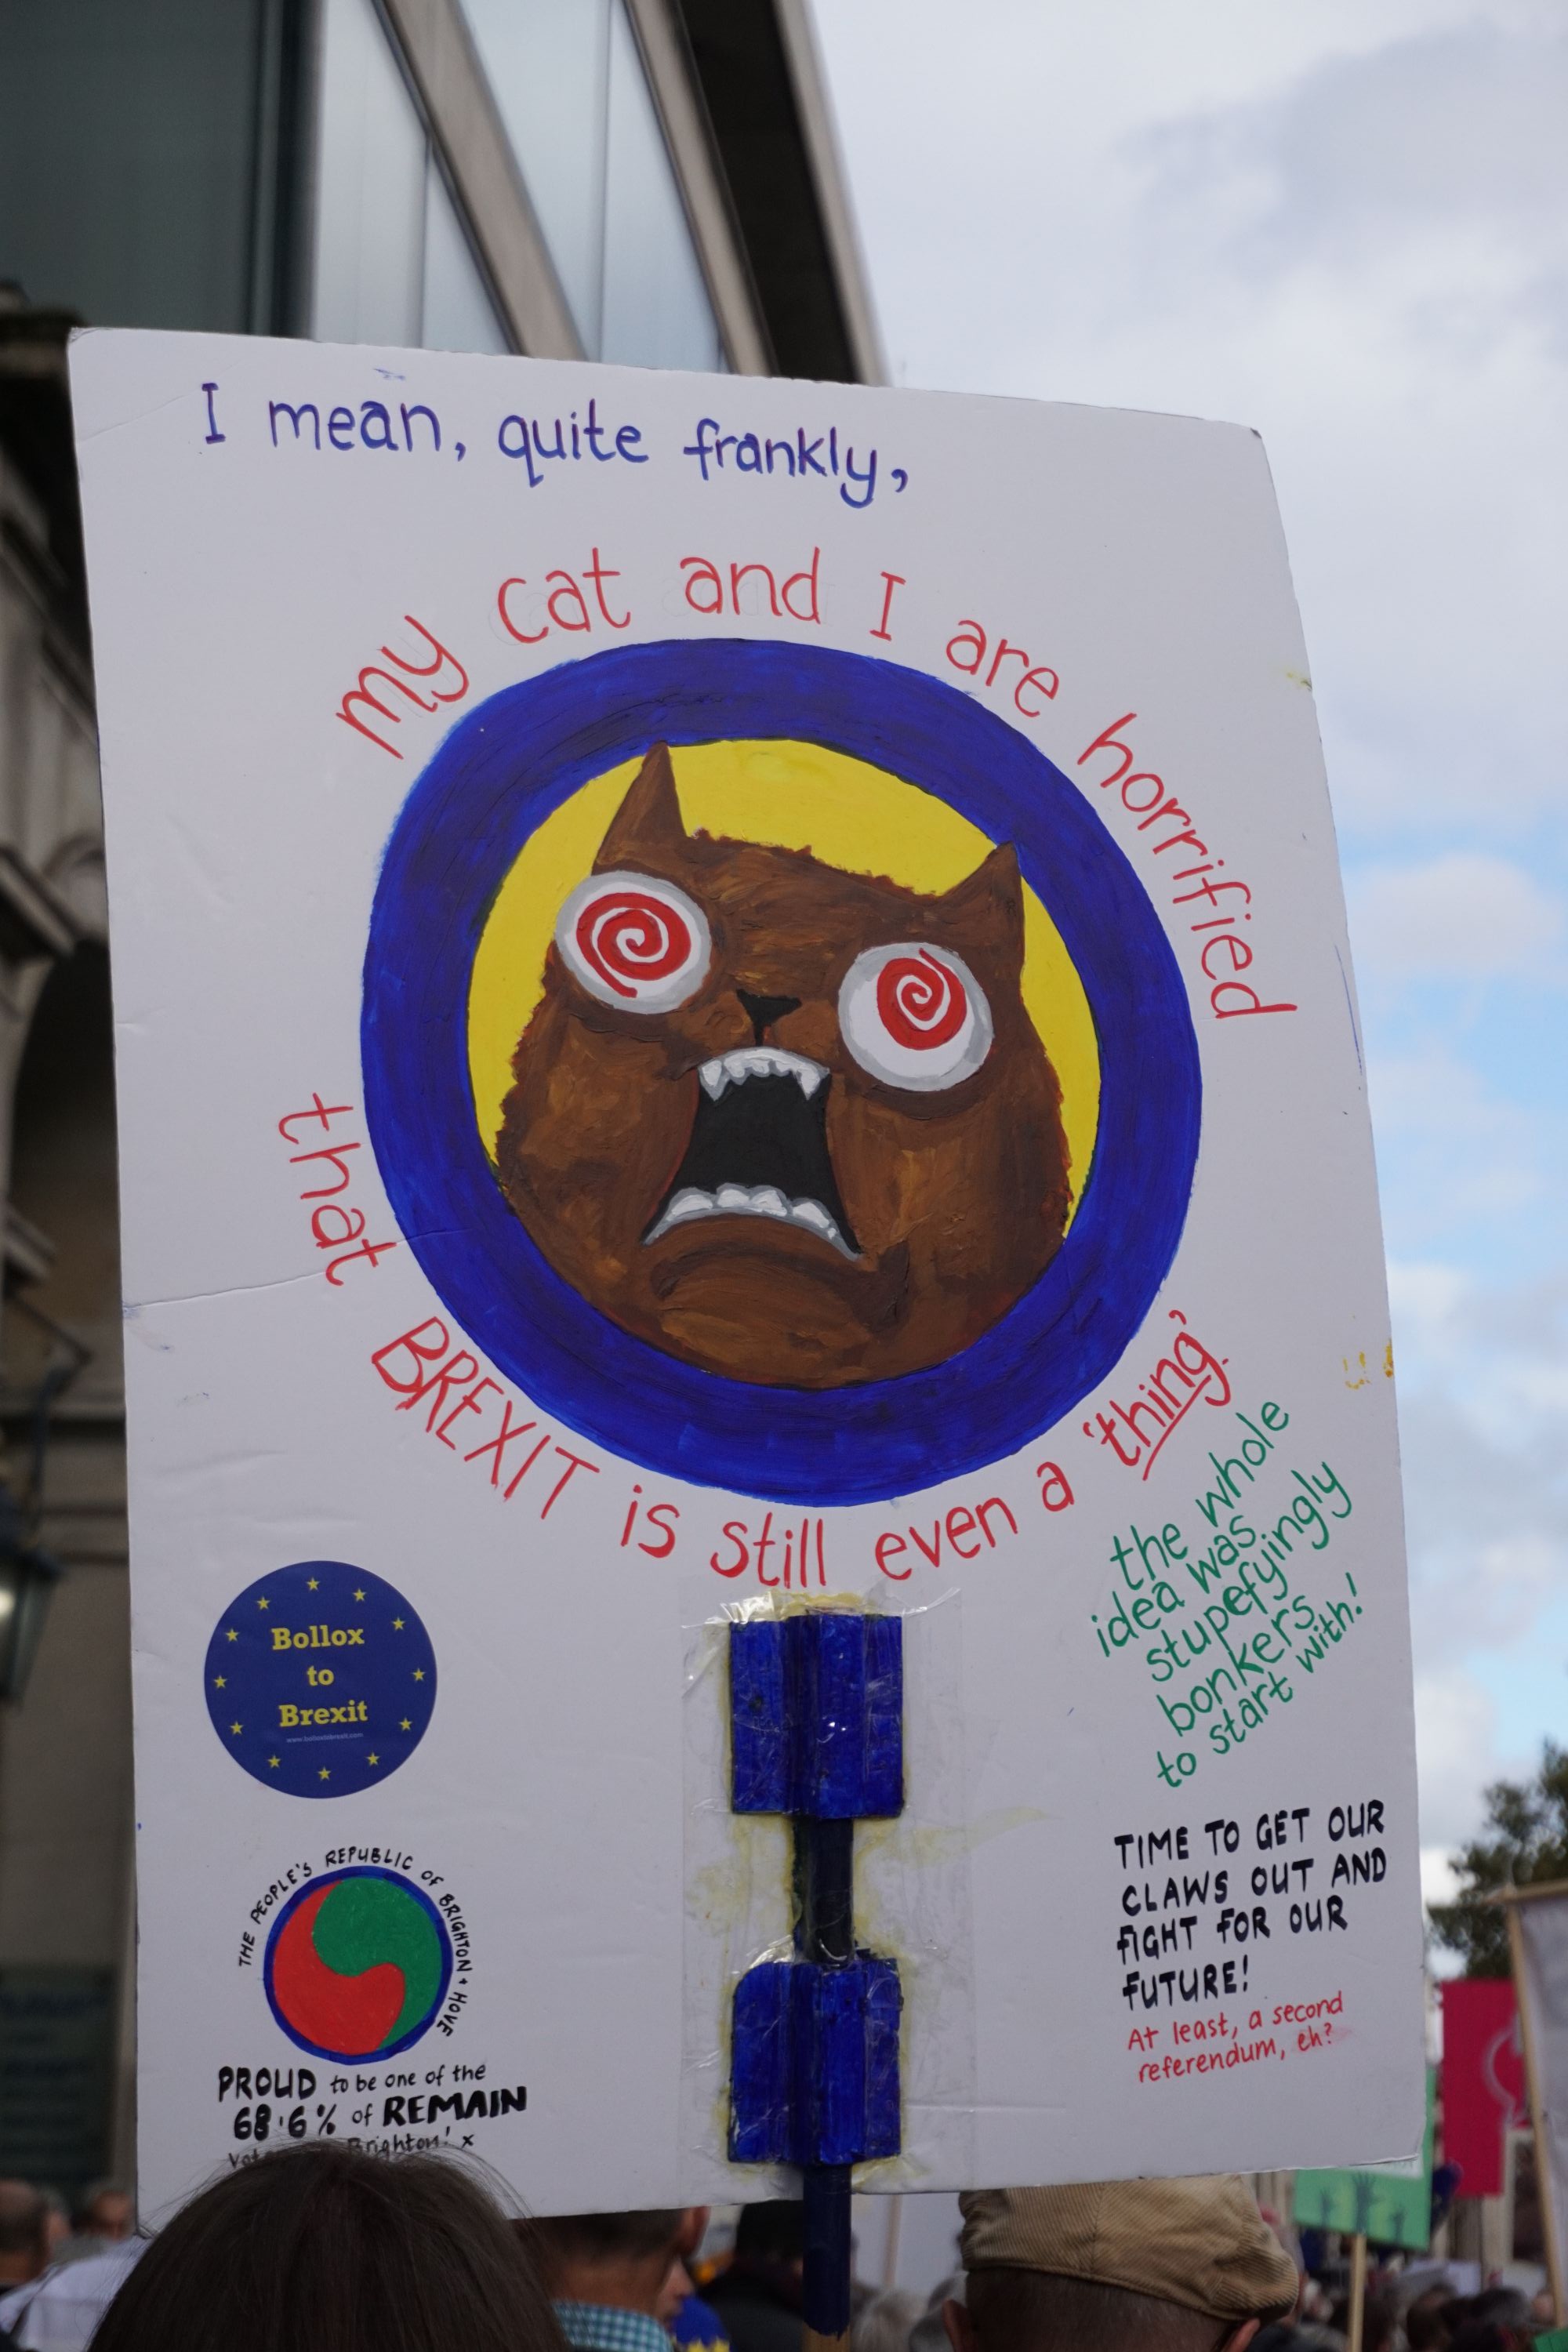 I mean, quite frankly,
my cat and I are horrified
that BREXIT is still even a 'thing'.
the whole
idea was
stupefyingly
bonkers
to start with!
Bollox
to
Brexit
TIME TO GET OUR
CLAWS OUT AND
FIGHT FOR OUR
FUTURE!
At least, a second
referendum, eh?
THE PEOPLE'S REPUBLIC OF BRIGHTON + HOVE
PROUD to be one of the
68.6% of REMAIN
Brighton! x